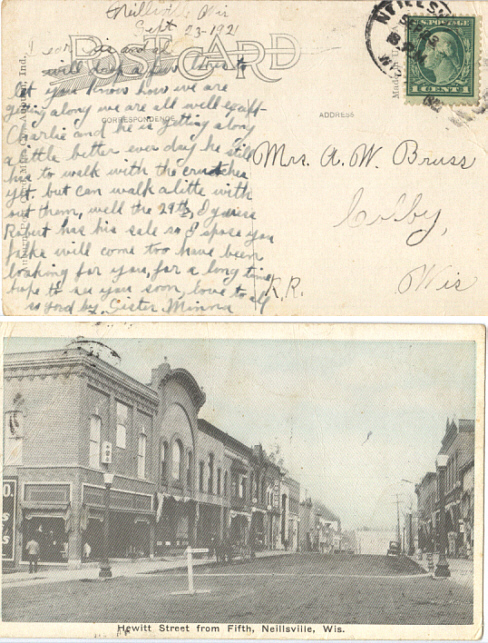 Neillsville Wis
Sept 23-1921
will drop a few lines to
let you know how we are
getting along we are all well except
Charlie and he is getting along
a little better ever day he still
has to walk with the crutches
yet. but can walk a little with
out them, well the 29th, I guess
Robut has his sale so I spose you
folks will come too have been
looking for you, for a long time
hope to see you soon, love to all
so good by, Sister Minnra
POST CARD
CORRESPONDENCE
ADDRESS
NEILLSV
WIS
U.S. POSTAGE
1 CENT 1
Made in U.
Auburn, Ind.,
Mrs. A. W. Bruss
Colby,
R.R. Wis
Hewitt Street from Fifth, Neillsville, Wis.